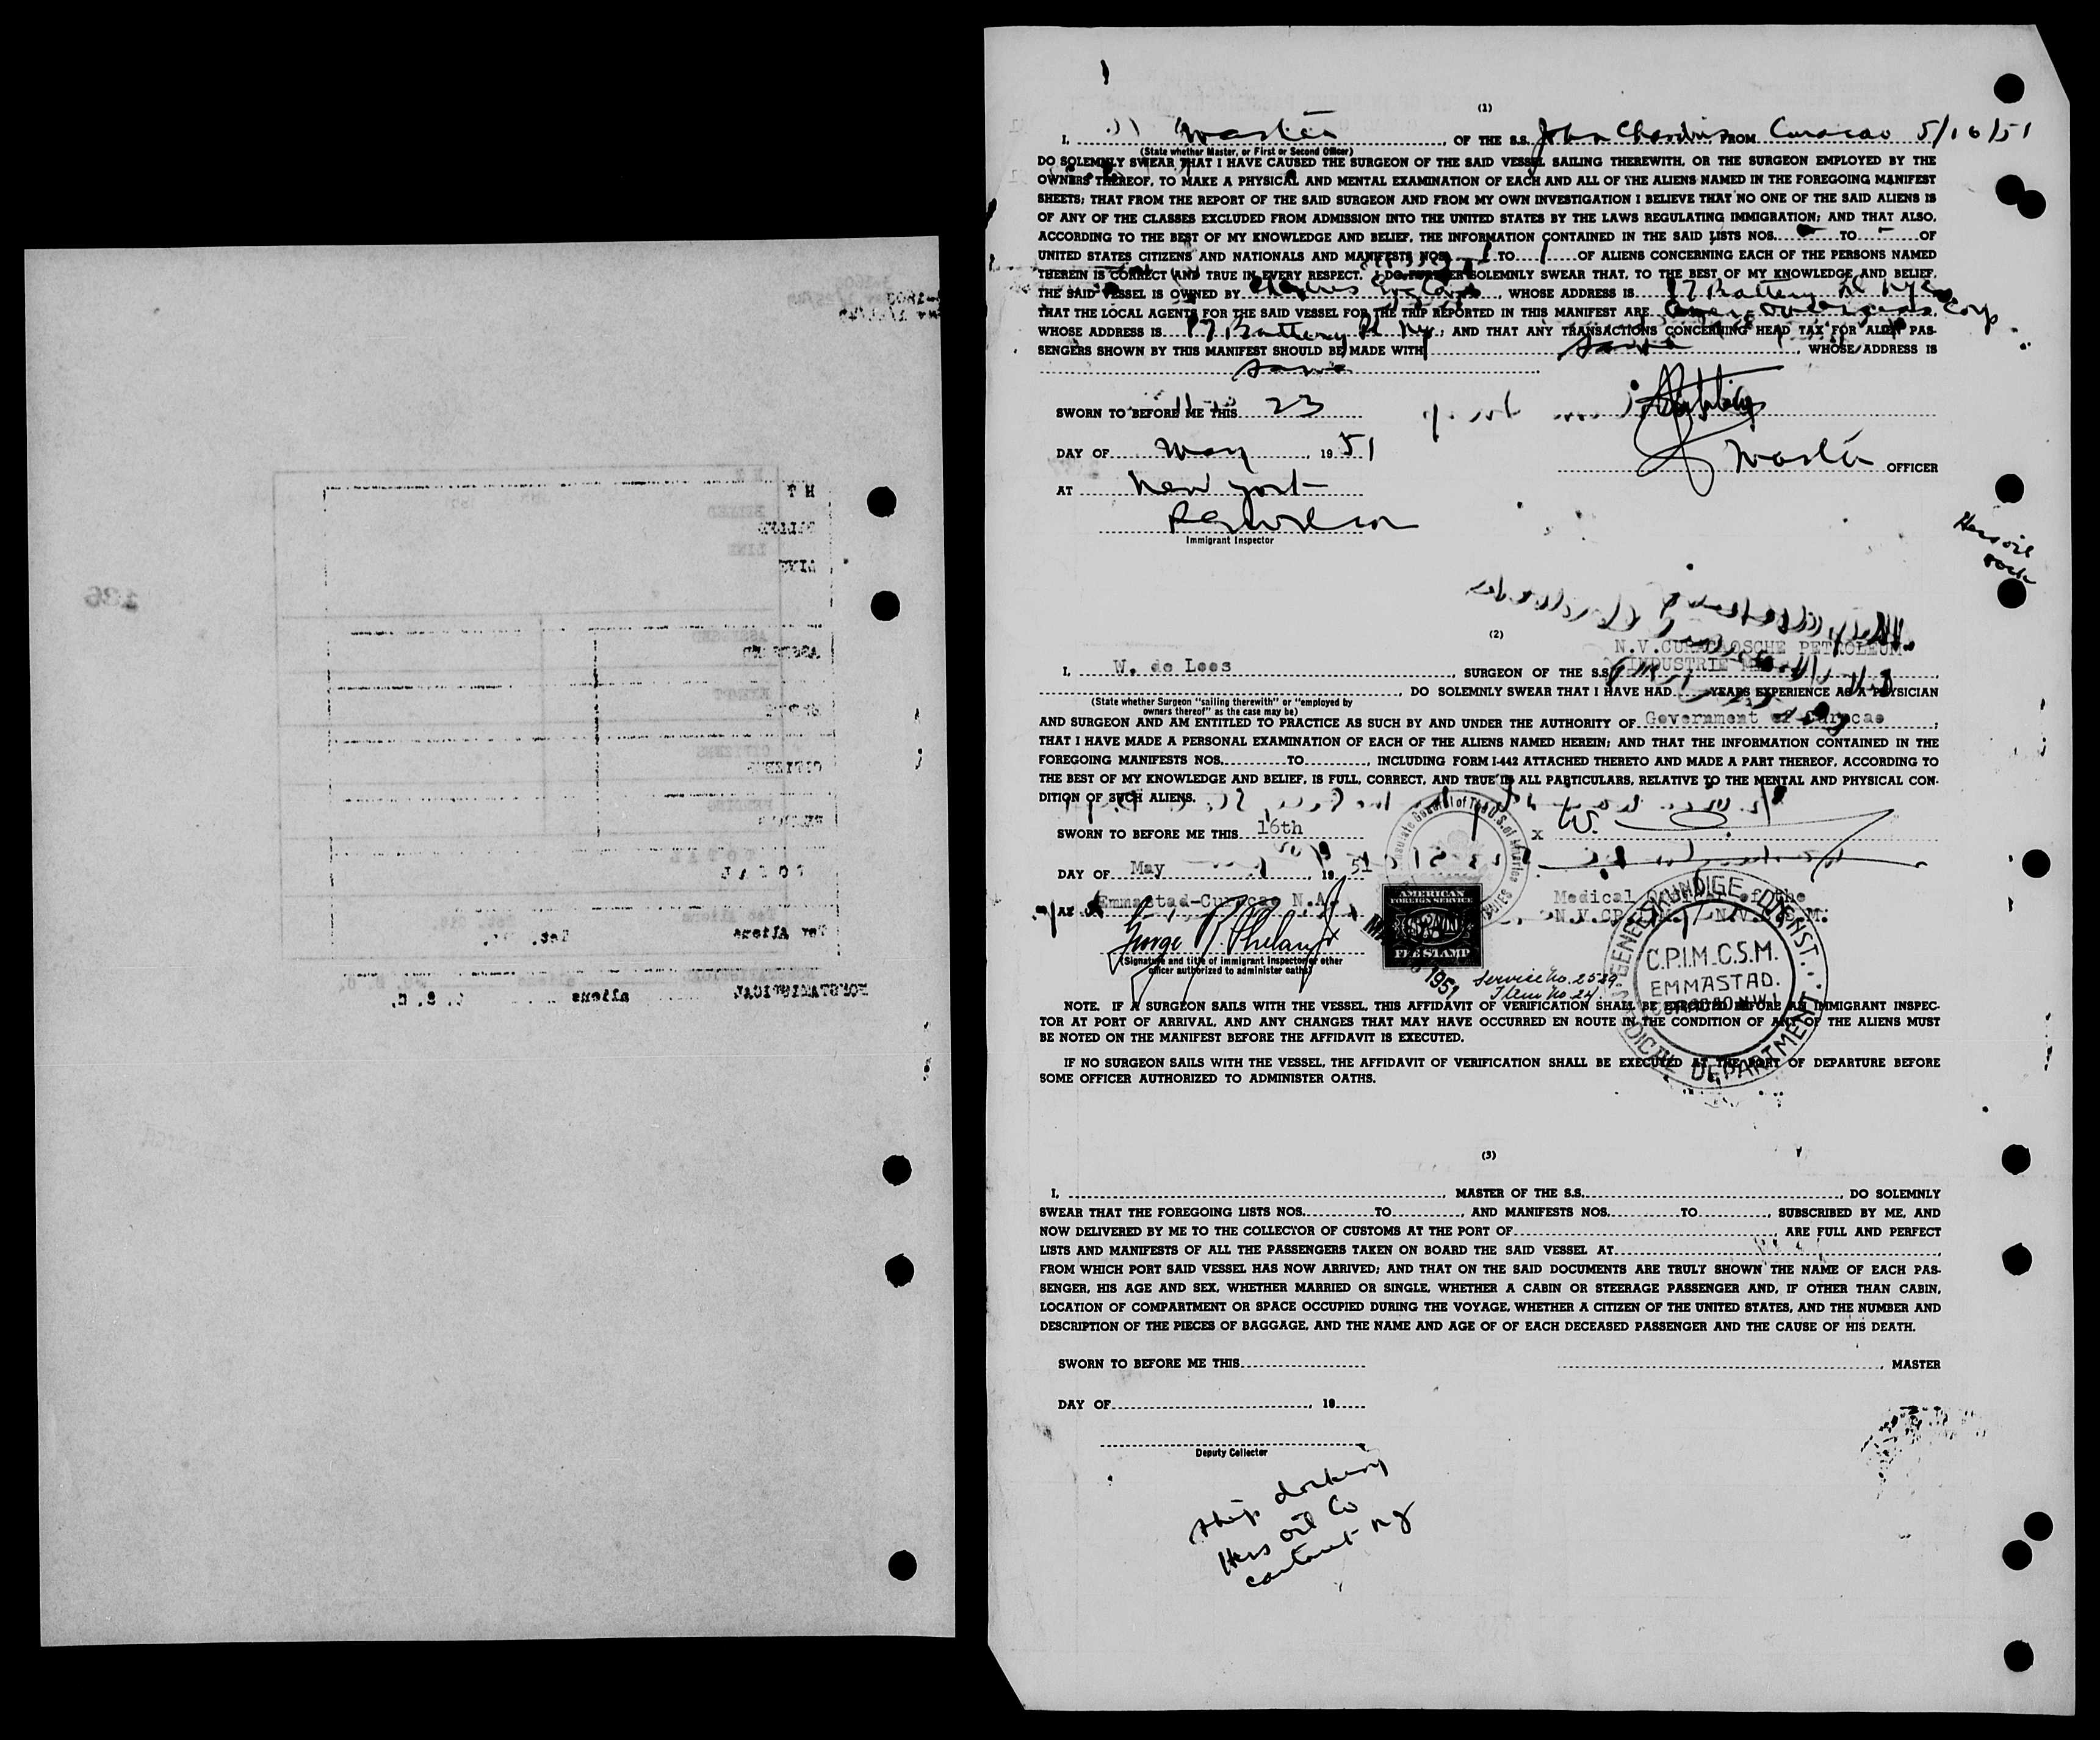 (1)
I, Master, OF THE S.S. John Chandris FROM Curacao 5/16/51
(State whether Master, or First or Second Officer)
DO SOLEMNLY SWEAR THAT I HAVE CAUSED THE SURGEON OF THE SAID VESSEL SAILING THEREWITH, OR THE SURGEON EMPLOYED BY THE
OWNERS THEREOF, TO MAKE A PHYSICAL AND MENTAL EXAMINATION OF EACH AND ALL OF THE ALIENS NAMED IN THE FOREGOING MANIFEST
SHEETS; THAT FROM THE REPORT OF THE SAID SURGEON AND FROM MY OWN INVESTIGATION I BELIEVE THAT NO ONE OF THE SAID ALIENS IS
OF ANY OF THE CLASSES EXCLUDED FROM ADMISSION INTO THE UNITED STATES BY THE LAWS REGULATING IMMIGRATION; AND THAT ALSO,
ACCORDING TO THE BEST OF MY KNOWLEDGE AND BELIEF, THE INFORMATION CONTAINED IN THE SAID LISTS NOS. - TO - OF
UNITED STATES CITIZENS AND NATIONALS AND MANIFESTS NOS. 1 TO 1 OF ALIENS CONCERNING EACH OF THE PERSONS NAMED
THEREIN IS CORRECT AND TRUE IN EVERY RESPECT. I DO FURTHER SOLEMNLY SWEAR THAT, TO THE BEST OF MY KNOWLEDGE AND BELIEF,
THE SAID VESSEL IS OWNED BY Chandris, WHOSE ADDRESS IS 17 Battery Pl NYC
THAT THE LOCAL AGENTS FOR THE SAID VESSEL FOR THE TRIP REPORTED IN THIS MANIFEST ARE Corp
WHOSE ADDRESS IS 17 Battery Pl NY; AND THAT ANY TRANSACTIONS CONCERNING HEAD TAX FOR ALIEN PAS-
SENGERS SHOWN BY THIS MANIFEST SHOULD BE MADE WITH same, WHOSE ADDRESS IS
same
SWORN TO BEFORE ME THIS 23
DAY OF May, 1951
Master OFFICER
AT New York
Immigrant Inspector
Hess oil
dock
(2)
N.V.CURACAOSCHE PETROLEUM
INDUSTRIE MIJ
I, W. de Lees, SURGEON OF THE S.S.
, DO SOLEMNLY SWEAR THAT I HAVE HAD YEARS EXPERIENCE AS A PHYSICIAN
(State whether Surgeon "sailing therewith" or "employed by
owners thereof" as the case may be)
AND SURGEON AND AM ENTITLED TO PRACTICE AS SUCH BY AND UNDER THE AUTHORITY OF Government of Curacao,
THAT I HAVE MADE A PERSONAL EXAMINATION OF EACH OF THE ALIENS NAMED HEREIN; AND THAT THE INFORMATION CONTAINED IN THE
FOREGOING MANIFESTS NOS. TO , INCLUDING FORM I-442 ATTACHED THERETO AND MADE A PART THEREOF, ACCORDING TO
THE BEST OF MY KNOWLEDGE AND BELIEF, IS FULL, CORRECT, AND TRUE IN ALL PARTICULARS, RELATIVE TO THE MENTAL AND PHYSICAL CON-
DITION OF SUCH ALIENS.
SWORN TO BEFORE ME THIS 16th
x
DAY OF May, 1951
AT Emmastad-Curacao N.A.
Medical Officer of the
N.V.CP.I.M./N.V.C.S.M.
AMERICAN
FOREIGN SERVICE
FEE STAMP
George P. Phelan Jr
(Signature and title of immigrant Inspector or other
officer authorized to administer oaths)
1951
Service No. 2539
Item No. 24.
GENEESKUNDIGE DIENST
C.P.I.M.-C.S.M.
EMMASTAD.
CURACAO N.W.I.
MEDICAL DEPARTMENT
NOTE. IF A SURGEON SAILS WITH THE VESSEL, THIS AFFIDAVIT OF VERIFICATION SHALL BE EXECUTED BEFORE AN IMMIGRANT INSPEC-
TOR AT PORT OF ARRIVAL, AND ANY CHANGES THAT MAY HAVE OCCURRED EN ROUTE IN THE CONDITION OF ANY OF THE ALIENS MUST
BE NOTED ON THE MANIFEST BEFORE THE AFFIDAVIT IS EXECUTED.
IF NO SURGEON SAILS WITH THE VESSEL, THE AFFIDAVIT OF VERIFICATION SHALL BE EXECUTED AT THE PORT OF DEPARTURE BEFORE
SOME OFFICER AUTHORIZED TO ADMINISTER OATHS.
(3)
I, , MASTER OF THE S.S. , DO SOLEMNLY
SWEAR THAT THE FOREGOING LISTS NOS. TO , AND MANIFESTS NOS. TO , SUBSCRIBED BY ME, AND
NOW DELIVERED BY ME TO THE COLLECTOR OF CUSTOMS AT THE PORT OF , ARE FULL AND PERFECT
LISTS AND MANIFESTS OF ALL THE PASSENGERS TAKEN ON BOARD THE SAID VESSEL AT ,
FROM WHICH PORT SAID VESSEL HAS NOW ARRIVED; AND THAT ON THE SAID DOCUMENTS ARE TRULY SHOWN THE NAME OF EACH PAS-
SENGER, HIS AGE AND SEX, WHETHER MARRIED OR SINGLE, WHETHER A CABIN OR STEERAGE PASSENGER AND, IF OTHER THAN CABIN,
LOCATION OF COMPARTMENT OR SPACE OCCUPIED DURING THE VOYAGE, WHETHER A CITIZEN OF THE UNITED STATES, AND THE NUMBER AND
DESCRIPTION OF THE PIECES OF BAGGAGE, AND THE NAME AND AGE OF OF EACH DECEASED PASSENGER AND THE CAUSE OF HIS DEATH.
SWORN TO BEFORE ME THIS
, MASTER
DAY OF , 19
Deputy Collector
Ship docking
Hess Oil Co